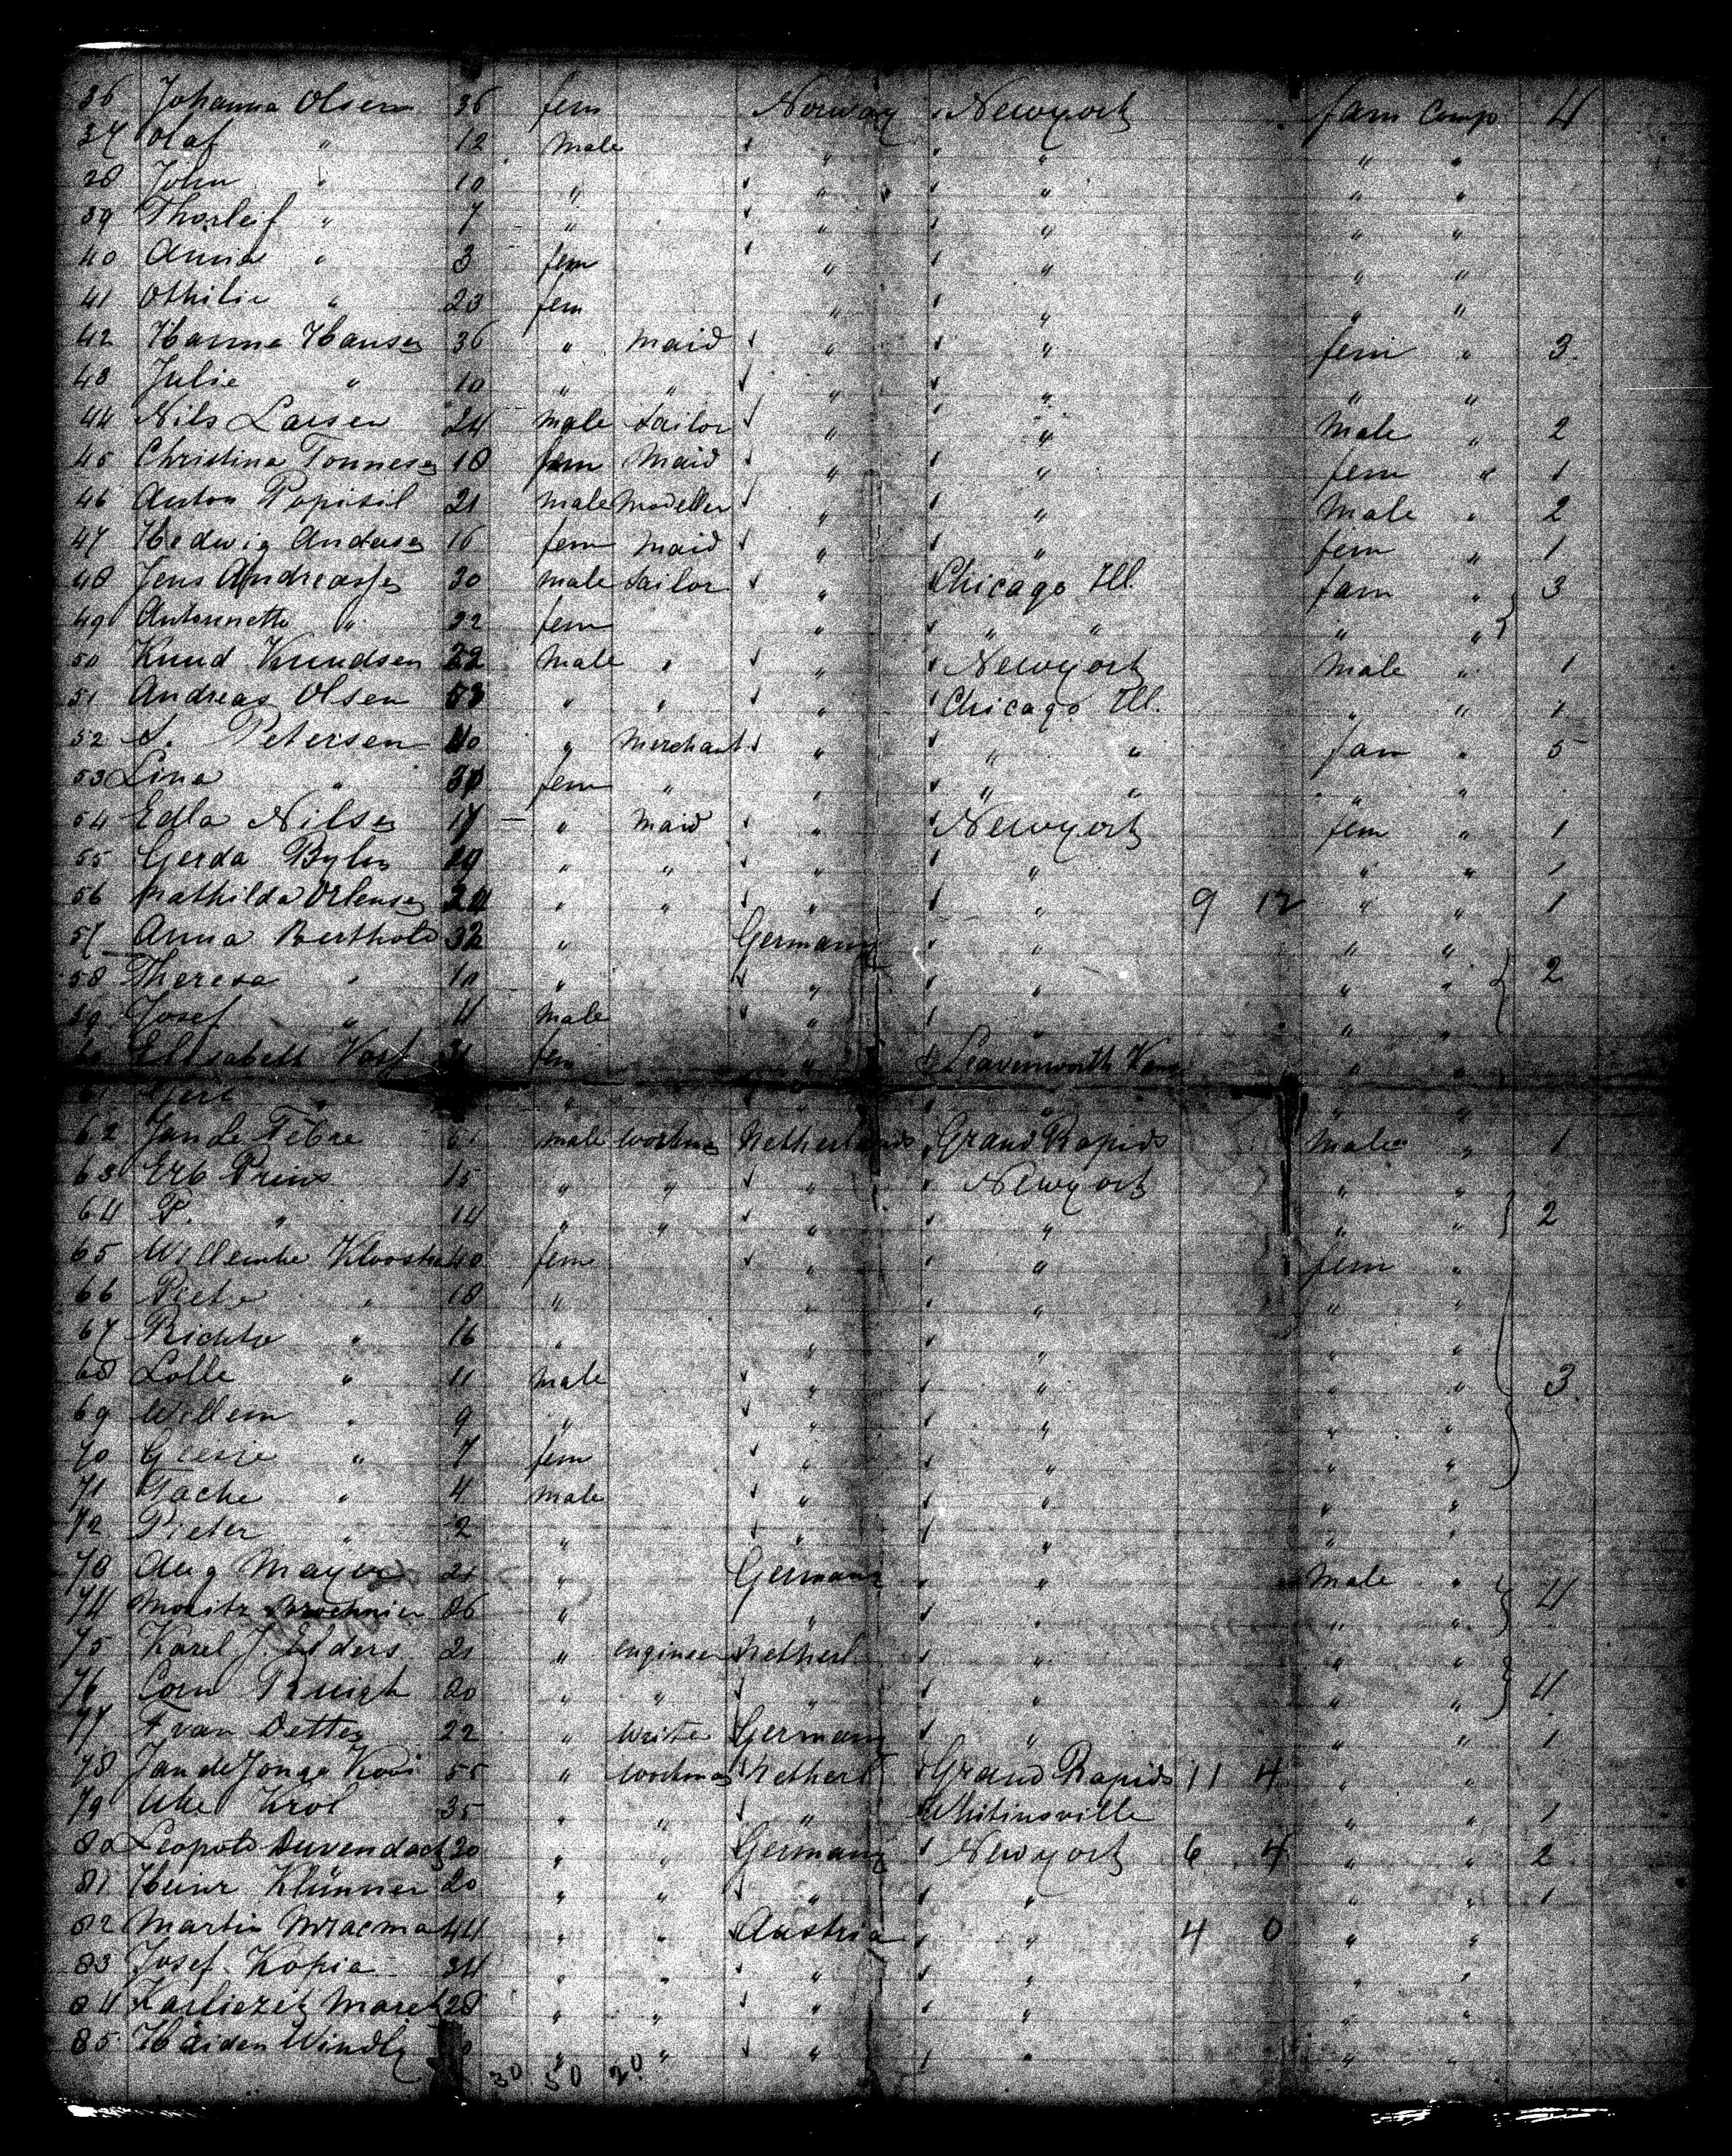 36 Johanna Olsen 36 fem Norway Newyork fam Comp 4
37 Olaf " 12 Male " " " "
38 John " 10 " " " " "
39 Thorleif " 7 " " " " "
40 Anna " 3 fem " " " "
41 Othilie " 23 fem " " " "
42 Hanna Hansen 36 " Maid " " fem " 3
43 Julie " 10 " " " " " "
44 Nils Larsen 24 male Sailor " " Male " 2
45 Christina Tonnesen 18 fem Maid " " fem " 1
46 Anton Popisil 21 male Modeller " " Male " 2
47 Hedwig Andersen 16 fem Maid " " fem " 1
48 Jens Andreassen 30 male Sailor " Chicago Ill. fam " 3
49 Antonnette " 22 fem " " " " "
50 Knud Knudsen 22 Male " " Newyork Male " 1
51 Andreas Olsen 53 " " " Chicago Ill. " " 1
52 S. Petersen 40 " Merchant " " " fam " 5
53 Lina " 31 fem " " " " " "
54 Edla Nilsen 17 " Maid " Newyork fem " 1
55 Gerda 19 " " " " " " 1
56 Mathilda 20 " " " " 9 12 " " 1
57 Anna Berthold 32 " Germany " " "
58 Theresa " 10 " " " " " 2
59 Josef " 4 male " " " "
60 Elisabeth fem " Leavenworth Kans " "
61 " " " " " "
62 Jan de Febre male workman Netherlands Grand Rapids Male " 1
63 Prins 15 " " " Newyork " "
64 P. " 14 " " " " " " 2
65 Willemke Kloostra 40 fem " " fem "
66 Pietje " 18 " " " " "
67 " 16 " " " " "
68 Lolle " 11 male " " " " 3
69 Willem " 9 " " " " "
70 " 7 fem " " " "
71 " 4 male " " " "
72 Pieter " 2 " " " " "
73 Aug Mayer 21 " Germany " Male "
74 Moritz 26 " " " " " 4
75 Karel J. Elders 21 " engineer Netherl. " " "
76 Corn 20 " " " " " " 4
77 F van Detten 22 " writer Germany " " " 1
78 Jan de Jonge Kooi 55 " workman Netherl Grand Rapids 11 4 " "
79 Krol 35 " " " Whitinsville " " 1
80 Leopold 20 " " Germany Newyork 6 4 " " 2
81 Heinr Klünner 20 " " " " " " 1
82 Martin 44 " " Austria " 4 0 " "
83 Josef Kopia 34 " " " " " "
84 28 " " " " " "
85 " " " " " "
30 50 20